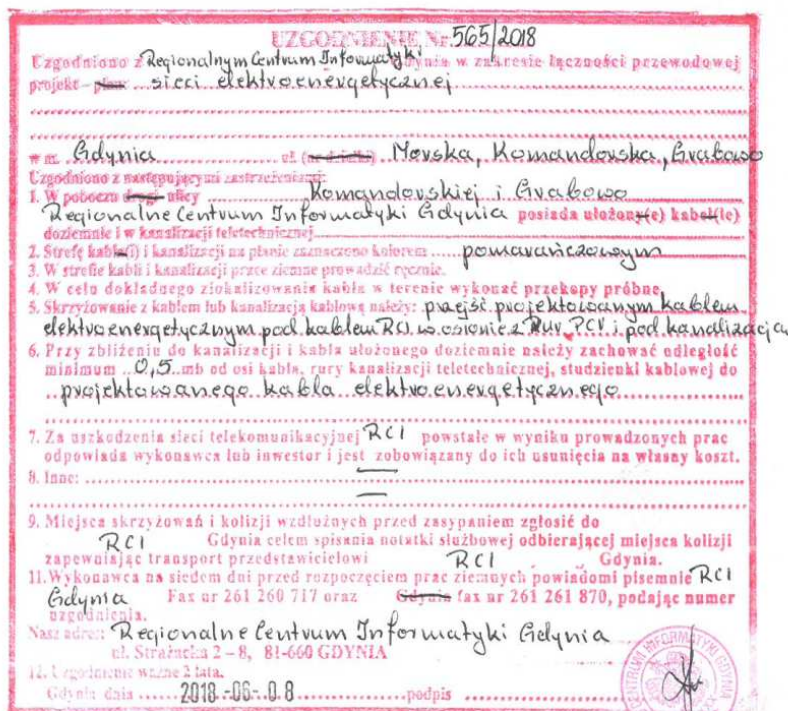 UZGODNIENIE Nr 565/2018
Uzgodniono z Regionalnym Centrum Informatyki Gdynia w zakresie łączności przewodowej
projekt – plan sieci elektroenergetycznej
w m. Gdynia ul. (nr działki) Morska, Komandorska, Grabowo
Uzgodniono z następującymi zastrzeżeniami:
1. W poboczu drogi ulicy Komandorskiej i Grabowo
Regionalne Centrum Informatyki Gdynia posiada ułożony(e) kabel(le)
doziemnie i w kanalizacji teletechnicznej
2. Strefę kabla(i) i kanalizacji na planie zaznaczono kolorem pomarańczowym
3. W strefie kabli i kanalizacji prace ziemne prowadzić ręcznie.
4. W celu dokładnego zlokalizowania kabla w terenie wykonać przekopy próbne.
5. Skrzyżowanie z kablem lub kanalizacją kablową należy: przejść projektowanym kablem
elektroenergetycznym pod kablem RCI w osłonie z rur PCV i pod kanalizacją
6. Przy zbliżenie do kanalizacji i kabla ułożonego doziemnie należy zachować odległość
minimum 0,5 mb od osi kabla, rury kanalizacji teletechnicznej, studzienki kablowej do
projektowanego kabla elektroenergetycznego
7. Za uszkodzenia sieci telekomunikacyjnej RCI powstałe w wyniku prowadzonych prac
odpowiada wykonawca lub inwestor i jest zobowiązany do ich usunięcia na własny koszt.
8. Inne: —
—
9. Miejsca skrzyżowań i kolizji wzdłużnych przed zasypaniem zgłosić do
RCI Gdynia celem spisania notatki służbowej odbierającej miejsca kolizji
zapewniając transport przedstawicielowi RCI Gdynia.
11. Wykonawca na siedem dni przed rozpoczęciem prac ziemnych powiadomi pisemnie RCI
Gdynia Fax nr 261 260 717 oraz Gdynia fax nr 261 261 870, podając numer
uzgodnienia.
Nasz adres: Regionalne Centrum Informatyki Gdynia
ul. Strażacka 2 – 8, 81-660 GDYNIA
12. Uzgodnienie ważne 2 lata.
Gdynia dnia 2018-06-08 podpis
CENTRUM INFORMATYKI GDYNIA